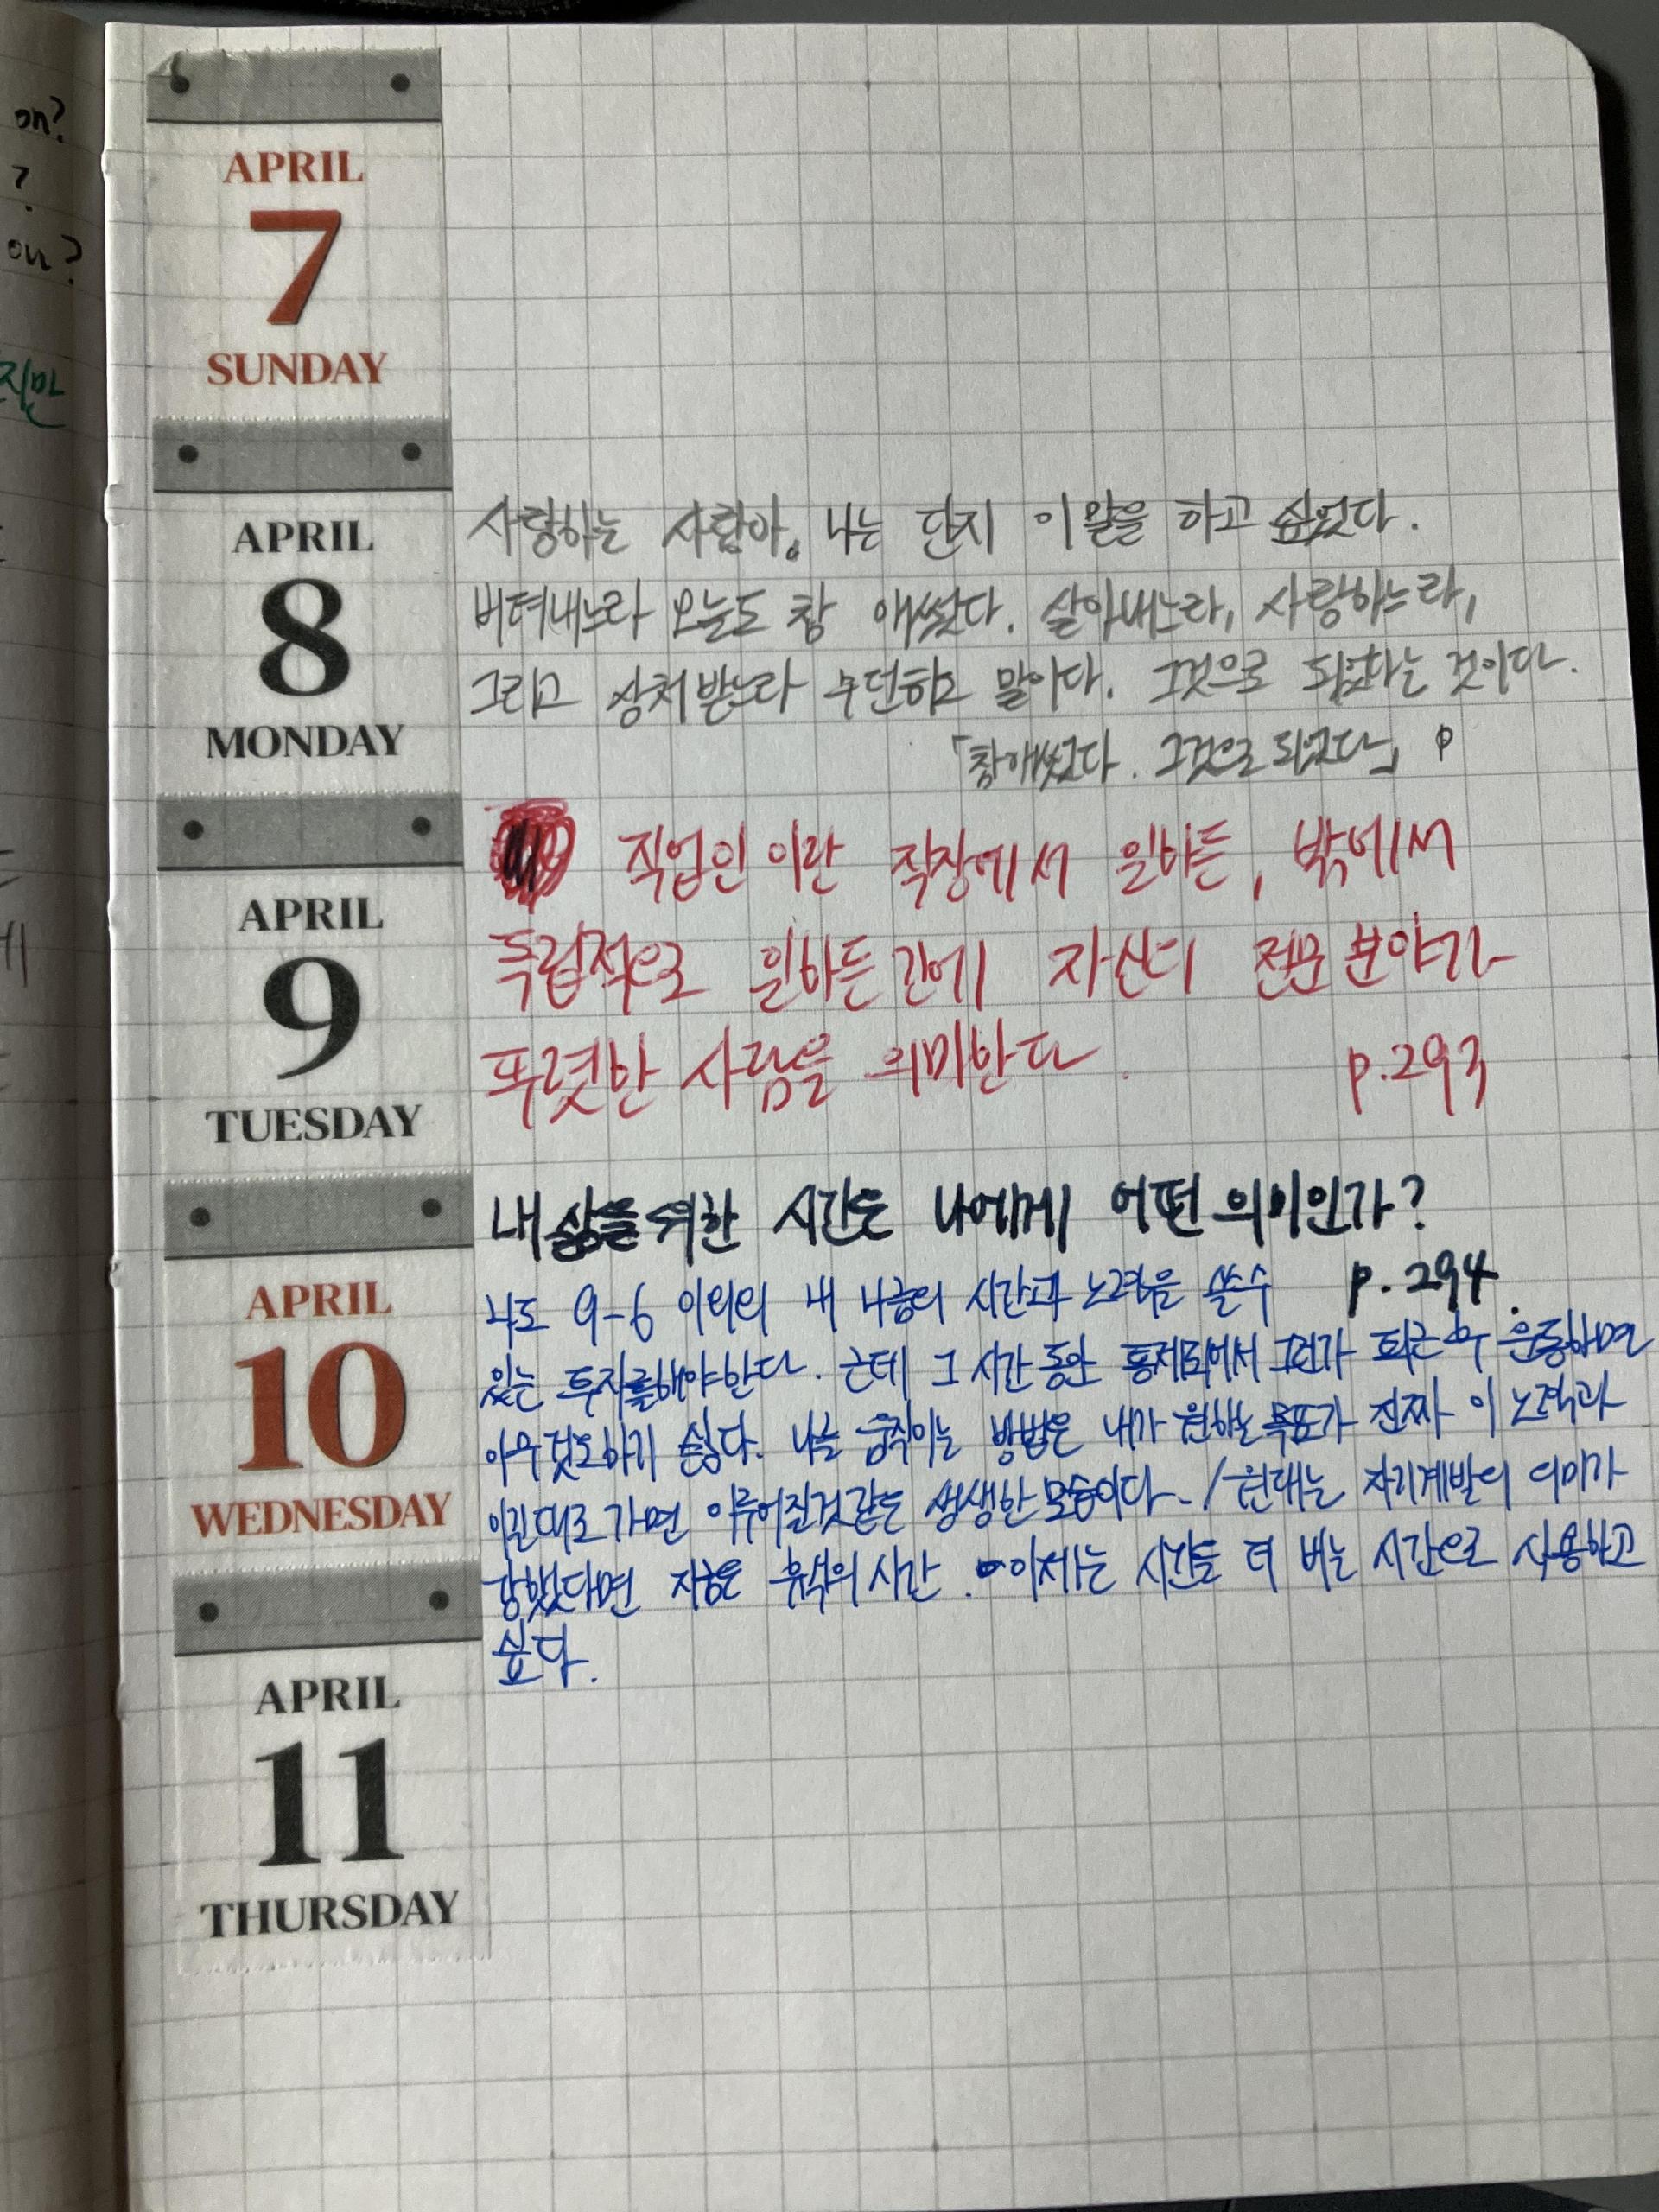 on?
?
on?
지만
APRIL
7
SUNDAY
APRIL
8
MONDAY
사랑하는 사람아. 나는 단지 이 말을 하고 싶었다.
버텨내느라 오늘도 참 애썼다. 살아내느라, 사랑하느라,
그리고 상처받느라 수던하고 말이다. 그것으로 되었다는 것이다.
「참 애썼다. 그것으로 되었다」 p
APRIL
9
TUESDAY
직업인이란 직장에서 일하든, 밖에서
독립적으로 일하든 간에 자신의 전문 분야가
뚜렷한 사람을 의미한다. p.293
APRIL
10
WEDNESDAY
내 삶을 위한 시간은 나에게 어떤 의미인가?
p.294.
나도 9-6 이외의 내 나름의 시간과 노력을 쓸 수
있는 투자를 해야한다. 근데 그 시간동안 통제되어서 그런가 퇴근 후 운동하면
아무것도하기 싫다. 나를 움직이는 방법은 내가 원하는 목표가 진짜 이 노력과
이런대로 가면 이루어질것같은 생생한 모습이다. / 원래는 자기계발의 의미가
강했었다면 지금은 휴식의 시간. 이제는 시간을 더 버는 시간으로 사용하고
싶다.
APRIL
11
THURSDAY